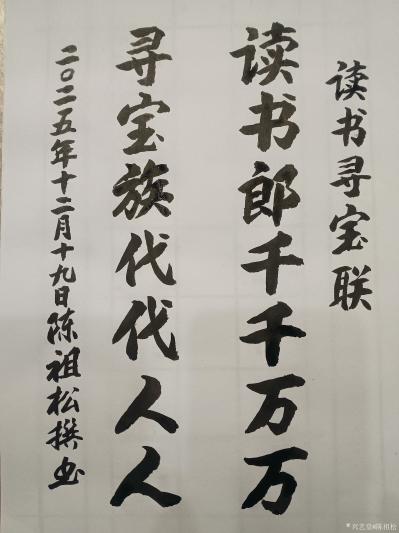 读书寻宝联
读书郎千千万万
寻宝族代代人人
二〇二五年十二月十九日陈祖松撰书